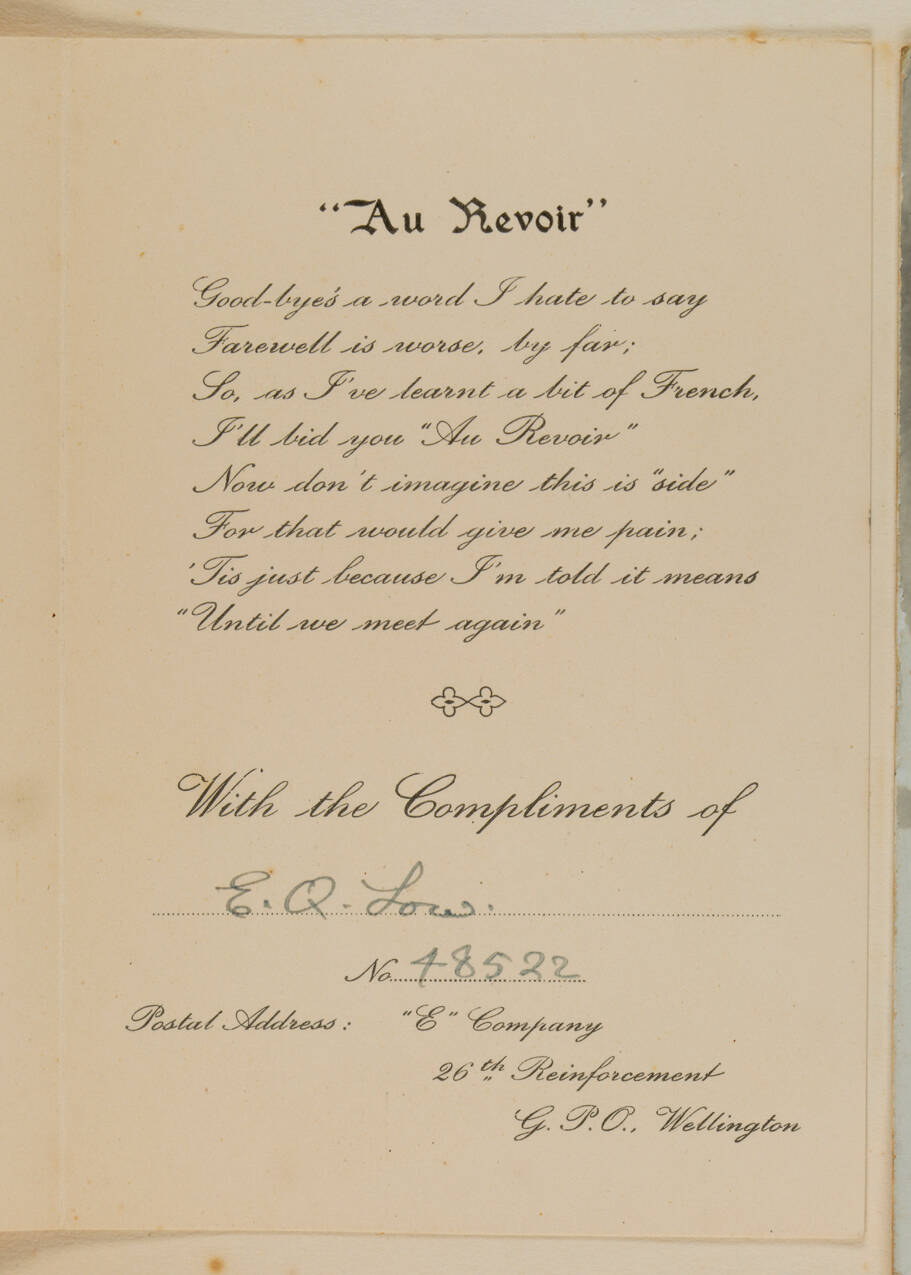 "Au Revoir"
Good-bye's a word I hate to say
Farewell is worse, by far;
So, as I've learnt a bit of French,
I'll bid you "Au Revoir"
Now don't imagine this is "side"
For that would give me pain;
'Tis just because I'm told it means
"Until we meet again"
With the Compliments of
E. Q. Low.
No. 48522
Postal Address: "E" Company
26th Reinforcement
G. P. O., Wellington